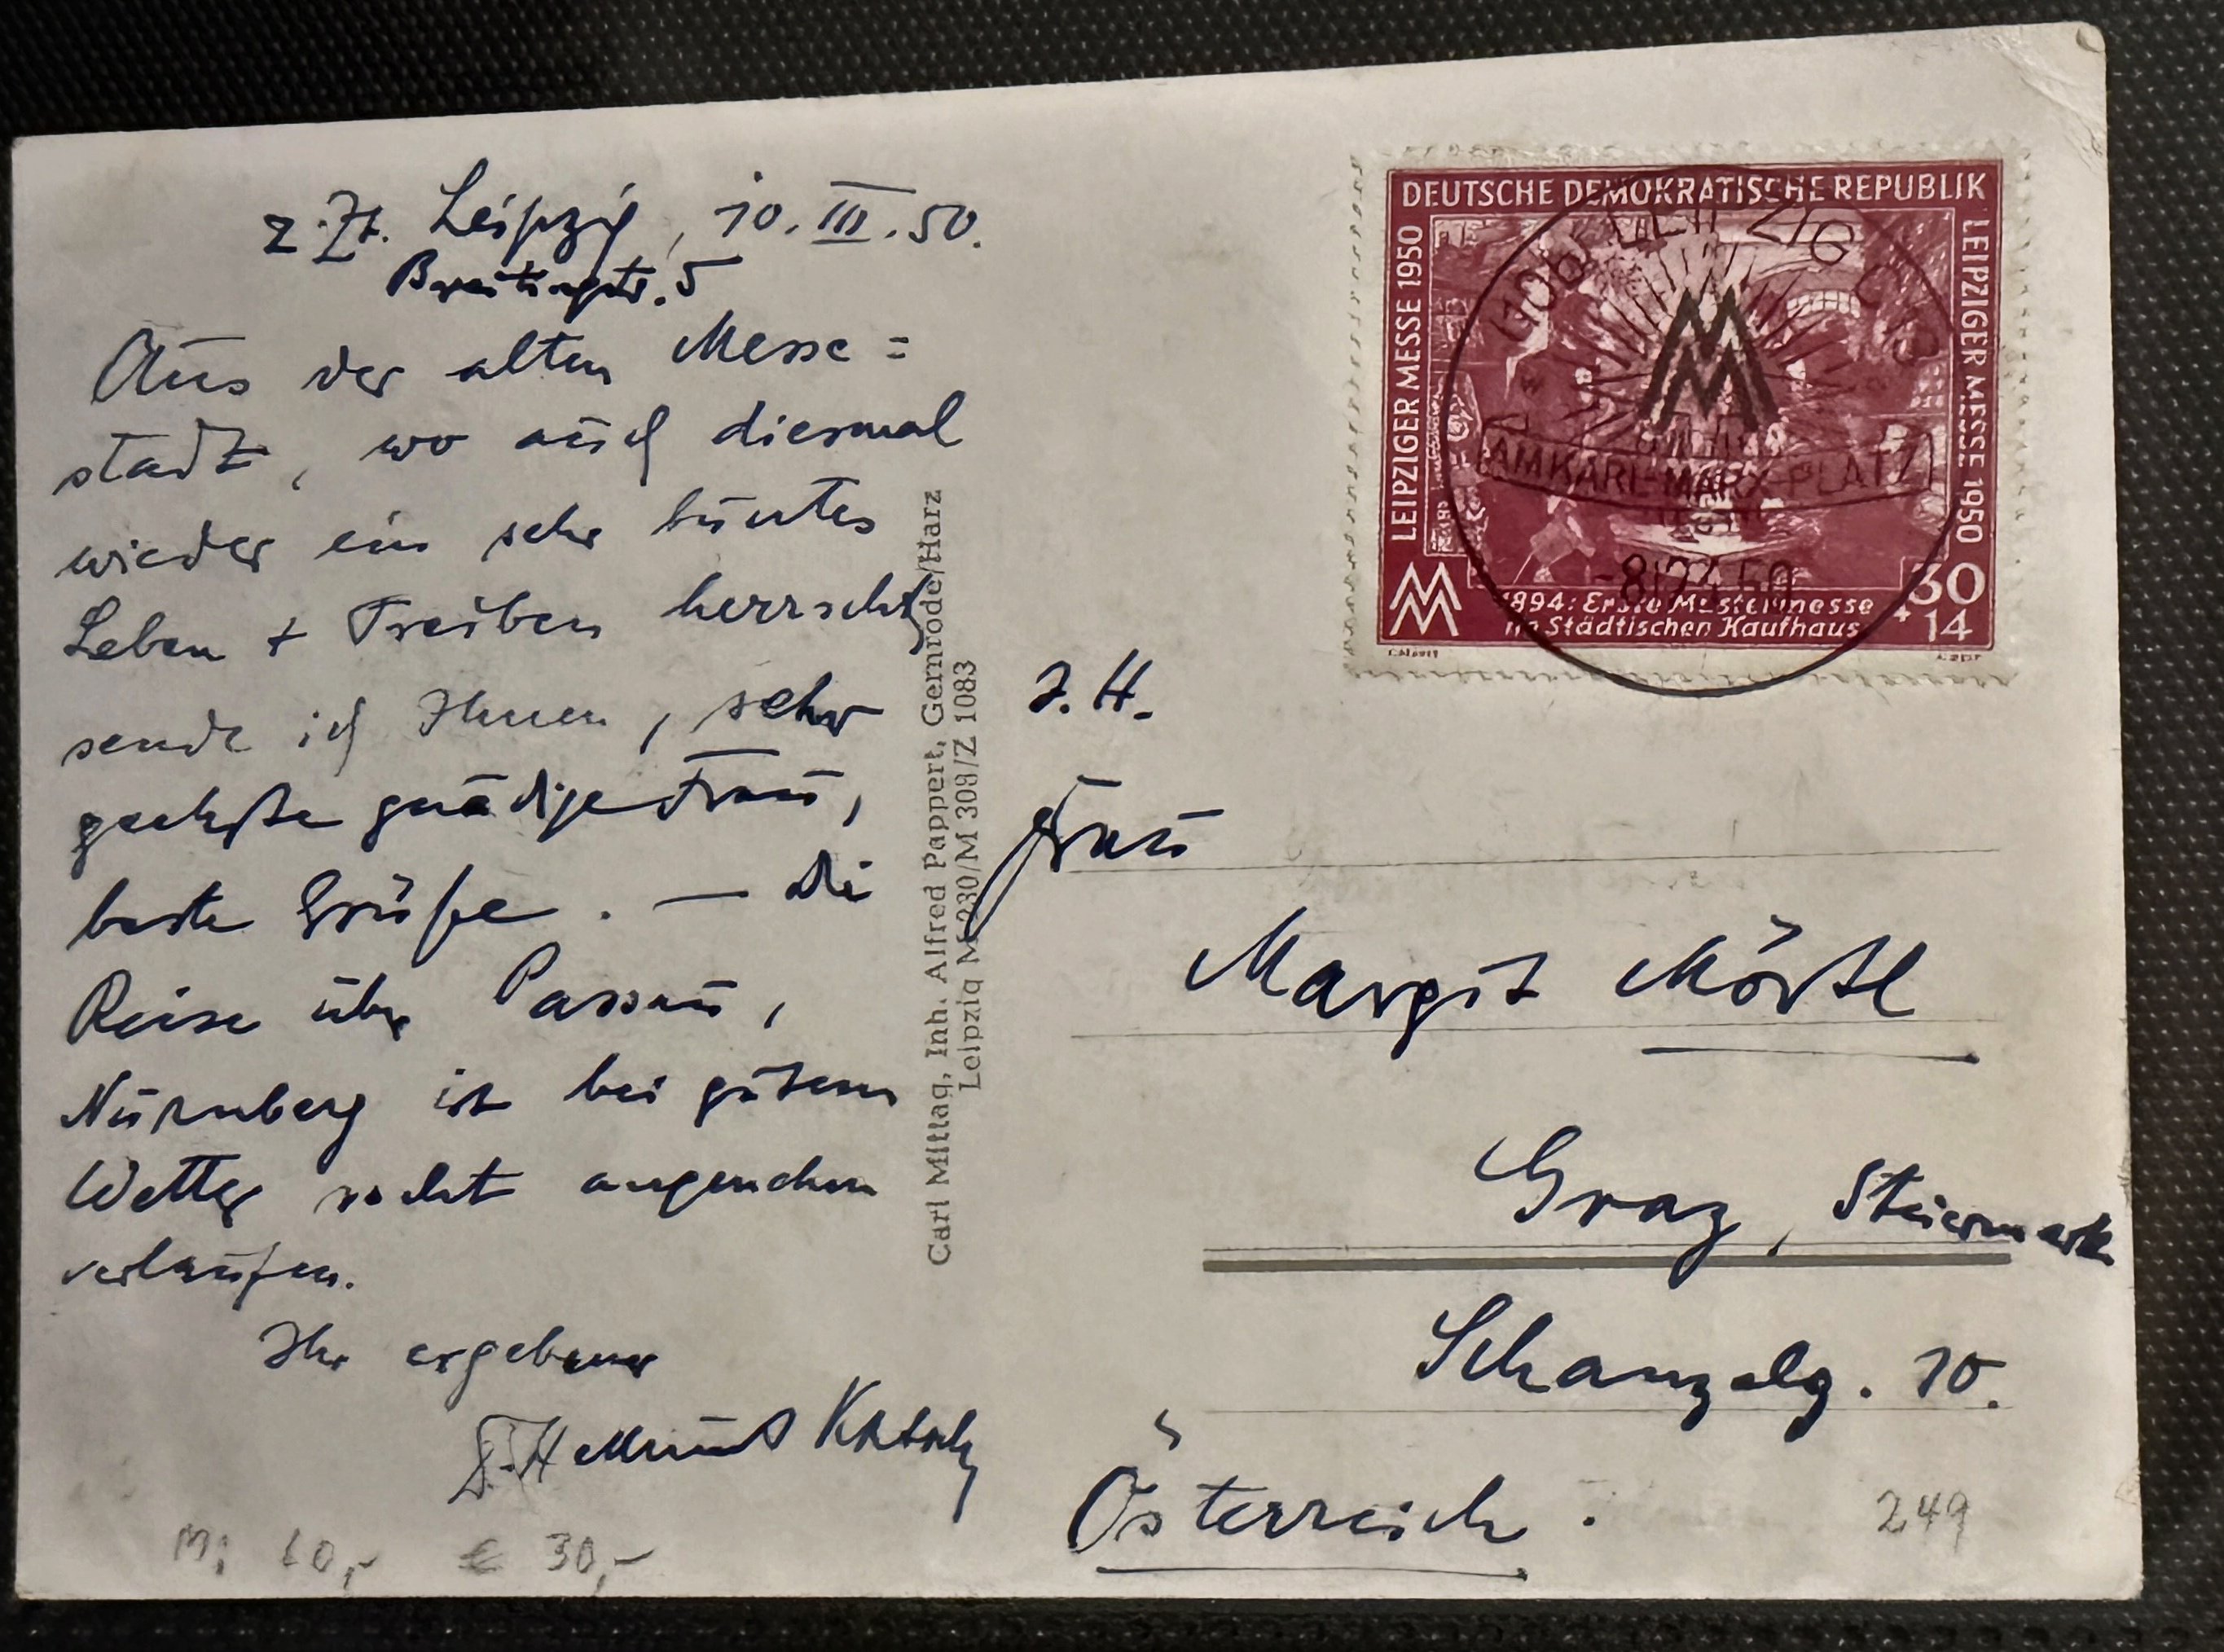 z. Zt. Leipzig, 10. III. 50.
Breitingstr. 5
Aus der alten Messe =
stadt, wo auch diesmal
wieder ein sehr buntes
Leben + Treiben herrscht,
sende ich Ihnen, sehr
geehrte gnädige Frau,
beste Grüße. — Die
Reise über Passau,
Nürnberg ist bei gutem
Wetter recht angenehm
verlaufen.
Ihr ergebener
Hellmut
M: 60,- € 30,-
Carl Mittag, Inh. Alfred Pappert, Gernrode/Harz
Leipzig M 230/M 308/Z 1083
DEUTSCHE DEMOKRATISCHE REPUBLIK
LEIPZIGER MESSE 1950
LEIPZIGER MESSE 1950
1894: Erste Mustermesse
im Städtischen Kaufhaus
30
+ 14
LEIPZIG C1
MM
AM KARL-MARX-PLATZ
I. H.
Frau
Margit Mörtl
Graz, Steiermark
Schanzelg. 10.
Österreich.
249